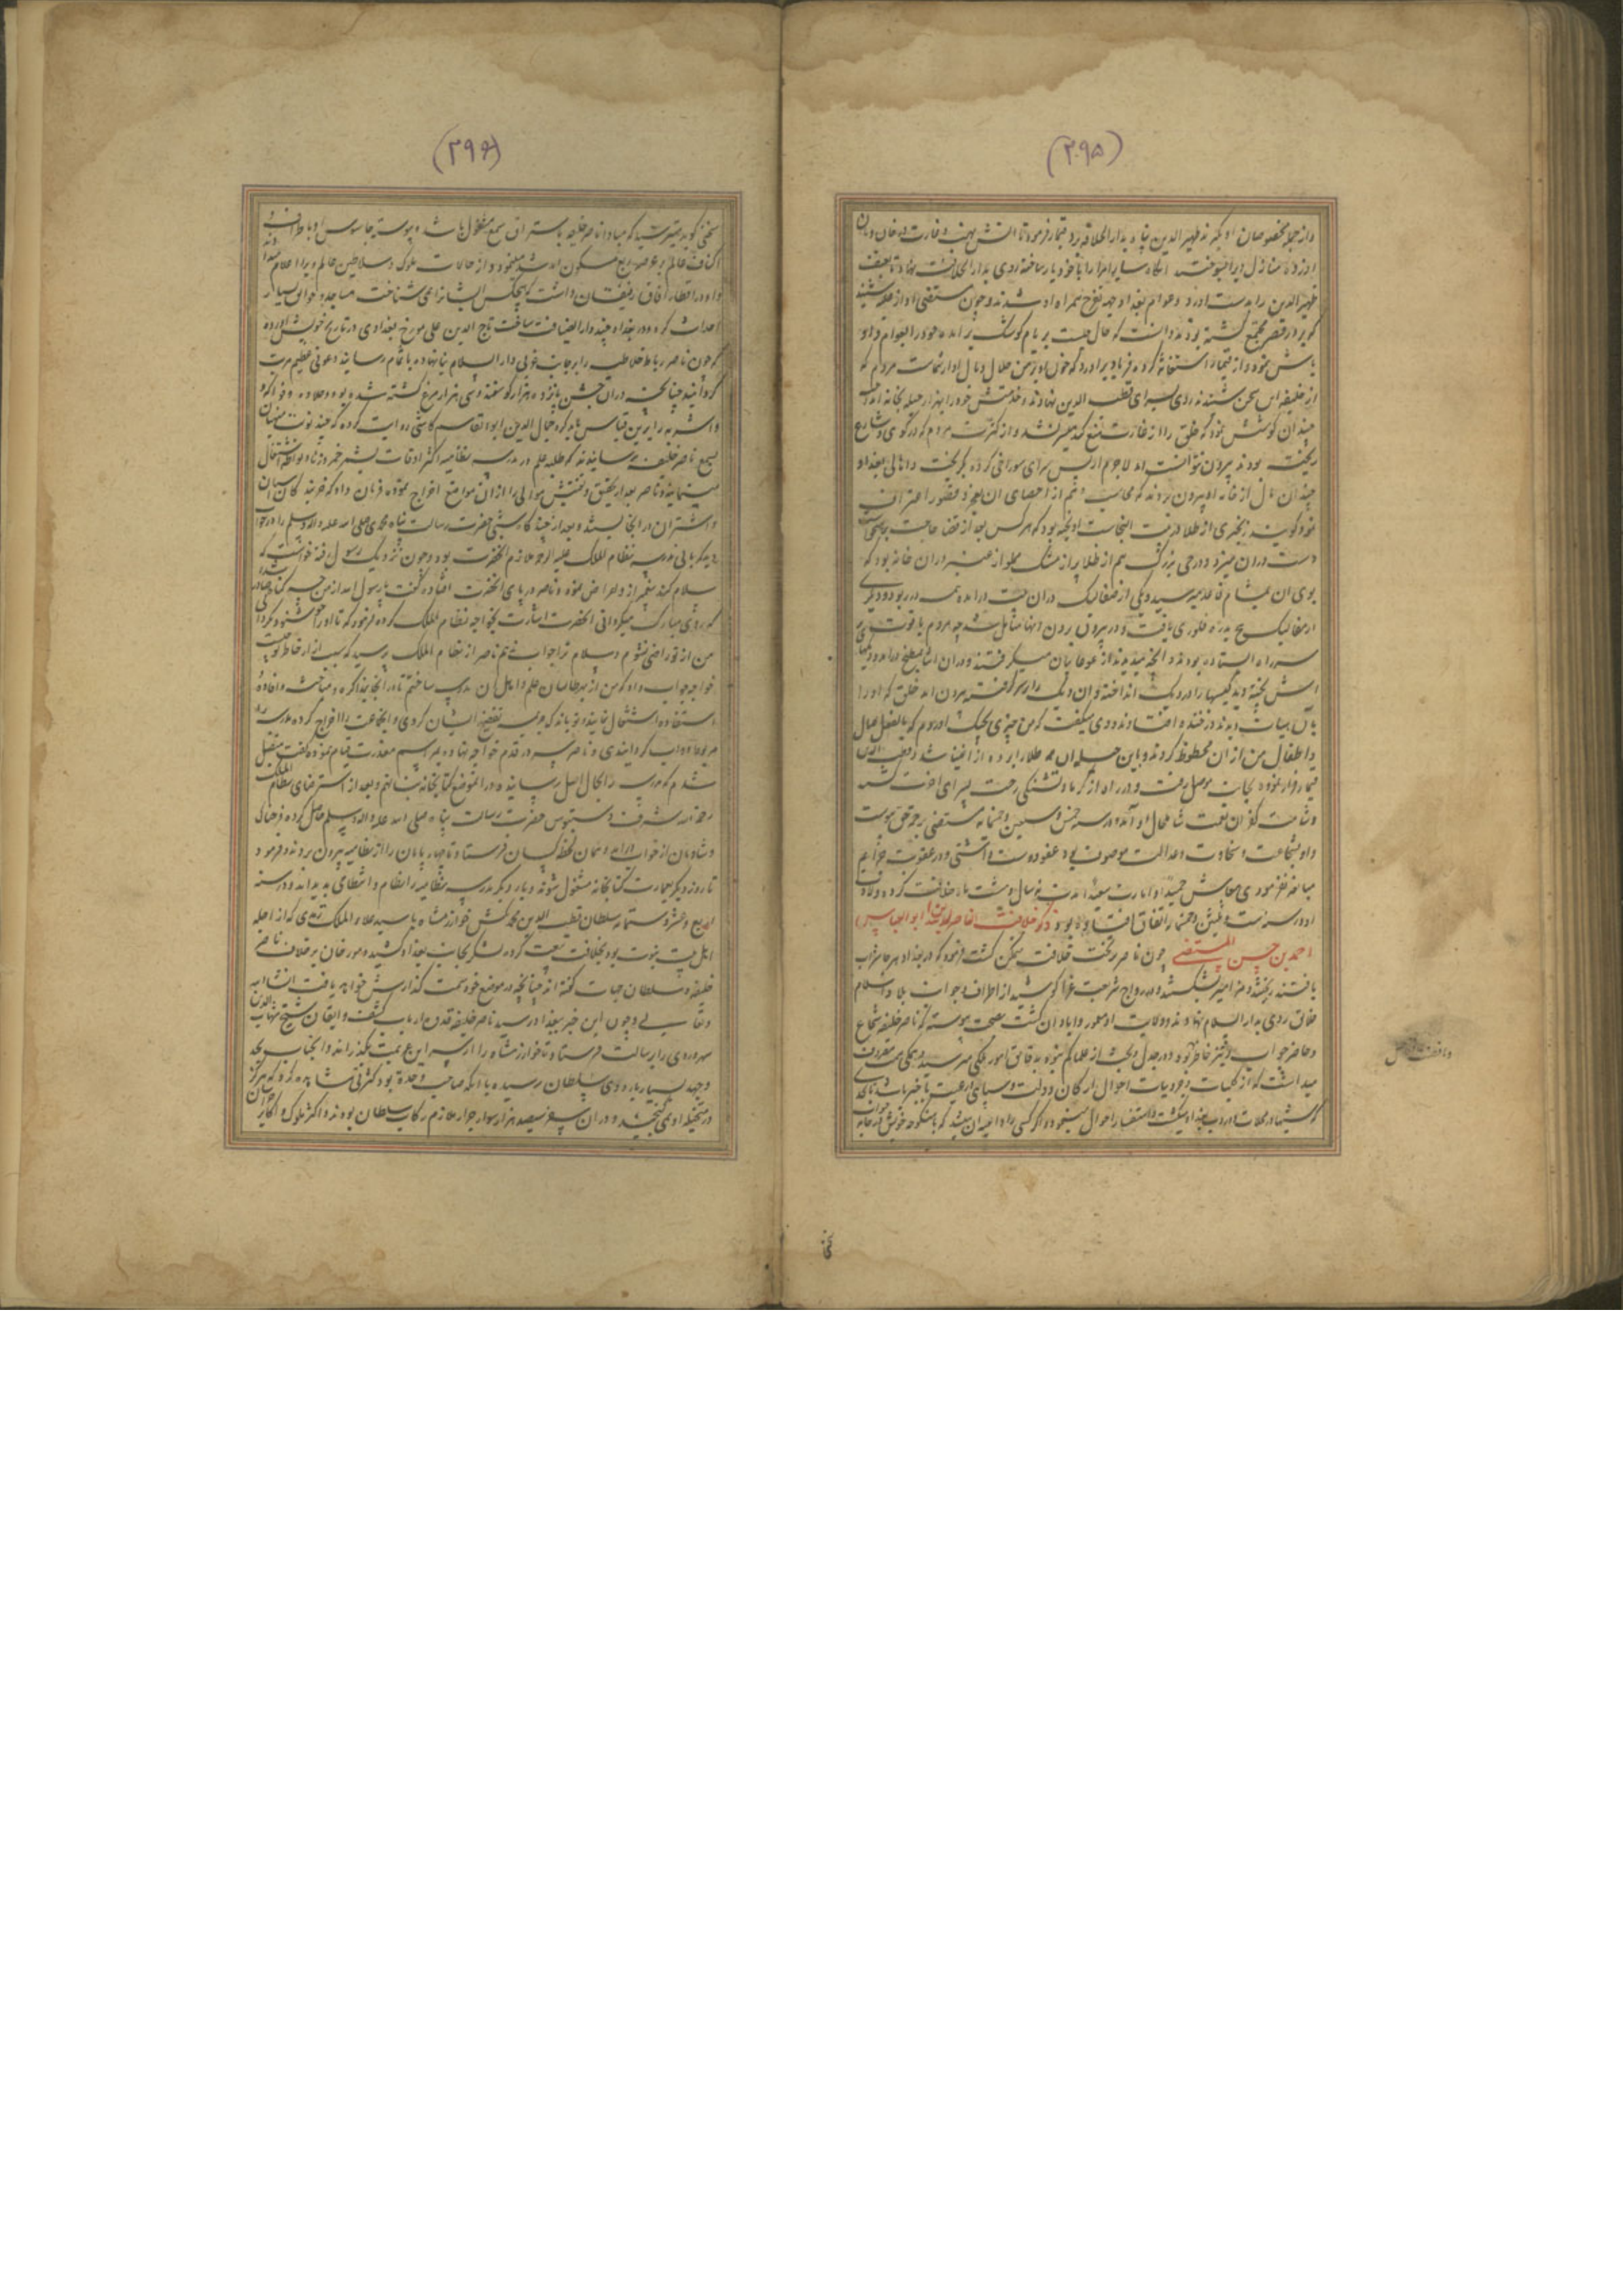 (۲۹۵)
واز جمله مخصوصان او بکیر که ظهیر الدین پناه بدار الخلافه برد قیماز فرمود تا آتش نهب و غارت در خان و مان
او زده منازل ویرا بسوختند انگاه سایر امرا را با خود یار ساخته روی بدار الخلافت نهاد تا بعنف
ظهیر الدین را بدست اورد و عوام بغداد جهة تفرج همراه او شدند و چون مستضی اواز
که بر در قصر مجتمع گشته بودند دانست که حال چیست بر بام کوشک بر امده خود را بعوام
نموده از قیماز استغاثه کرد و فریاد براورد که خون او از من حلال و مال او از شماست مردم که
از خلیفه این سخن شنیدند روی بسرای قطب الدین نهادند
چندان کوشش نمود که خلق را از غارت منع کند میسر نشد و از کثرت مردم که در کوی و شارع
ریخته بودند بیرون نتوانست امد لاجرم از پس سرای سوراخی کرده بگریخت و اهالی بغداد
چندان مال از خانه او بیرون بردند که محاسب وهم از احصای ان بعجز و قصور اعتراف
نمود گویند زنجیری از طلا در بیت الخلا او اویخته بود که هر کس بعد از قضا حاجت برخاستی
دست دران میزد و در جی بزرگ هم از طلا پر از مشک مملو از عنبر دران خانه بود که
بوی ان بمشام میرسید و یکی از صعالیک دران بیت در امده در ربود و دیگری
از صعالیک بدره فلوری یافت و در بیرون بردن انها متامل شد چه مردم با قوت بر
سر راه ایستاده بودند و انچه میدیدند از غوغاییان میگرفتند و دران اثنا بمطبخ در امد و دید
اش پخته دید کیسها را در دیگ انداخته وان دیگ را بر سر گرفته بیرون امد خلق که او را
بان هیات دیدند در خنده افتادند و وی میگفت که من چیزی بجهت اوردم که بالفعل عیال
و اطفال من از ان محظوظ گردند و باین حیله ان همه طلا را برده از اغنیا شد و قطب الدین
قیماز فرار نموده بجانب موصل رفت و در راه از گرما و تشنگی رخت بسرای اخرت کشید
و شامت کفران نعمت شامل حال او آمد و در سنه خمس و سبعین و خمسمایه مستضی برحمت حق پیوست
و او بشجاعت و سخاوت و عدالت موصوف بود عفو دوست داشتی و در عقوبت جرایم
مبالغه نفرمودی معایش حمیدا و امارت سعیدا مدت نه سال و هشت ماه خلافت کرد و ولادت
او در سنه ست و ثلثین و خمسمایه اتفاق افتاده بود ذکر خلافت الناصر لدین الله ابو العباس
احمد بن حسن المستضی چون ناصر بر تخت خلافت متمکن گشت فرمود که در بغداد هر جا شراب
یافتند ریختند و مزامیر بشکستند و در رواج شریعت غرا کوشید از اطراف و جوانب بلاد اسلام
خلایق روی بدار السلام نهادند و ولایت او معمور و ابادان گشت بصحت پیوسته که ناصر خلیفه شجاع
و حاضر جواب و تیز خاطر بوده و در جدل و بحث از علما کم نبوده بدقایق امور ملکی میرسید و همگی همت مصروف
میداشت که از کلیات و جزویات احوال ارکان دولت و سپاهی و رعیت با خبر باشد تا بحدی
که شبها در محلات و دروب بغداد میگشت و استفسار احوال مینمود و اگر کسی را داعیه ان میشد که با منکوحه خویش در خانه
(۲۹۶)
سخنی گوید میترسید که مبادا ناصر خلیفه باستراق سمع مشغول باشد و پیوسته جاسوس او باطراف و
اکناف عالم بر عرصه ربع مسکون امد شد مینمود و از حالات ملوک و سلاطین عالم ویرا اعلام میداد
و او در اقطار آفاق رفیقان داشت که هیچکس ایشانرا نمی شناخت مساجد و خوانق بسیار
احداث کرد و در بغداد چند دار الضیافت ساخت تاج الدین علی مورخ بغدادی در تاریخ خویش اورده
که چون ناصر رباط خلاطیه را بر جانب غربی دار السلام بنا نهاده باتمام رسانید دعوتی عظیم مرتب
گردانید چنانچه دران جشن پانزده هزار گوسفند و سی هزار مرغ کشته شده بود و حلاوه و فواکه
و اشربه را برین قیاس باید کرد جمال الدین ابو القاسم کاشی روایت کرده که چند نوبت
بسمع ناصر خلیفه رسانیدند که طلبه علم در مدرسه نظامیه اکثر اوقات بشرب خمر و زنا و لواطه اشتغال
مینمایند و ناصر بعد از تحقیق و تفتیش موالی را ازان موضع اخراج نموده فرمان داد که خربندگان استران
و اشتران در انجا ببندند و بعد از چندگاه شبی حضرت رسالت پناه محمدی صلی الله علیه و اله وسلم را در خواب
دید که بانی مدرسه نظام الملک علیه الرحمه ملازم انحضرت بود و چون نزدیک رسول رفته خواست که
سلام کند پیغمبر از وی اعراض نمود و ناصر در پای انحضرت افتاده گفت یا رسول الله از من چه گناه صادر شده
که روی مبارک میگردانی انحضرت اشارت بخواجه نظام الملک کرده فرمود که تا او را خوشنود نگردانی
من از تو راضی نشوم و سلام ترا جواب نمیدهم ناصر از نظام الملک پرسید که سبب انحراف خاطر تو چیست
خواجه جواب داد که من از بهر طالبان علم و اهل ان مدرسه ساختم تا در انجا بمذاکره و مباحثه و افاده و
استفاده اشتغال نمایند و تو بگناه بعضی ایشان کردی و انجماعت را اخراج کرده مدرسه را
مربوط دواب گردانیدی و ناصر سر در قدم خواجه نهاده بمراسم معذرت قیام نموده گفت متقبل
شدم که مدرسه را بحال اصل رسانیده و دران موضع کتابخانه بنا نهم و بعد از استرضای نظام الملک
رحمه الله شرف دستبوس حضرت رسالت پناه صلی الله علیه و اله وسلم حاصل کرده فرحان
و شادمان از خواب درامد و همان لحظه کسان فرستاد تا چهارپایان را از نظامیه بیرون بردند و فرمود
تا روز دیگر بعمارت کتابخانه مشغول شوند و بار دیگر مدرسه نظامیه را نظام و انتظامی پدید امد و در سنه
اربع و عشر و ستمایه سلطان قطب الدین محمد تکش خوارزمشاه با سید علاء الملک ترمدی که از اجله
اهل بیت نبوت بود بخلافت بیعت کرده لشکر بجانب بغداد کشید و مورخان بر خلاف ناصر
خلیفه و سلطان جهات گفته اند چنانچه در موضع خود سمت گذارش خواهد یافت انشا الله
تعالی و چون این خبر ببغداد رسید ناصر خلیفه قدوه ارباب کشف و ایقان شیخ شهاب الدین
سهروردی را برسالت فرستاد تا خوارزمشاه را از سر این عزیمت بگذراند و انجناب بجد
و جهد بسیار باردوی سلطان رسیده با انکه صاحب وحدة بود کثرتی مشاهده کرد که هرگز
در متخیله او نمی گنجید و دران سفر سیصد هزار سوار جرار ملازم رکاب سلطان بودند و اکثر ملوک و اکابر